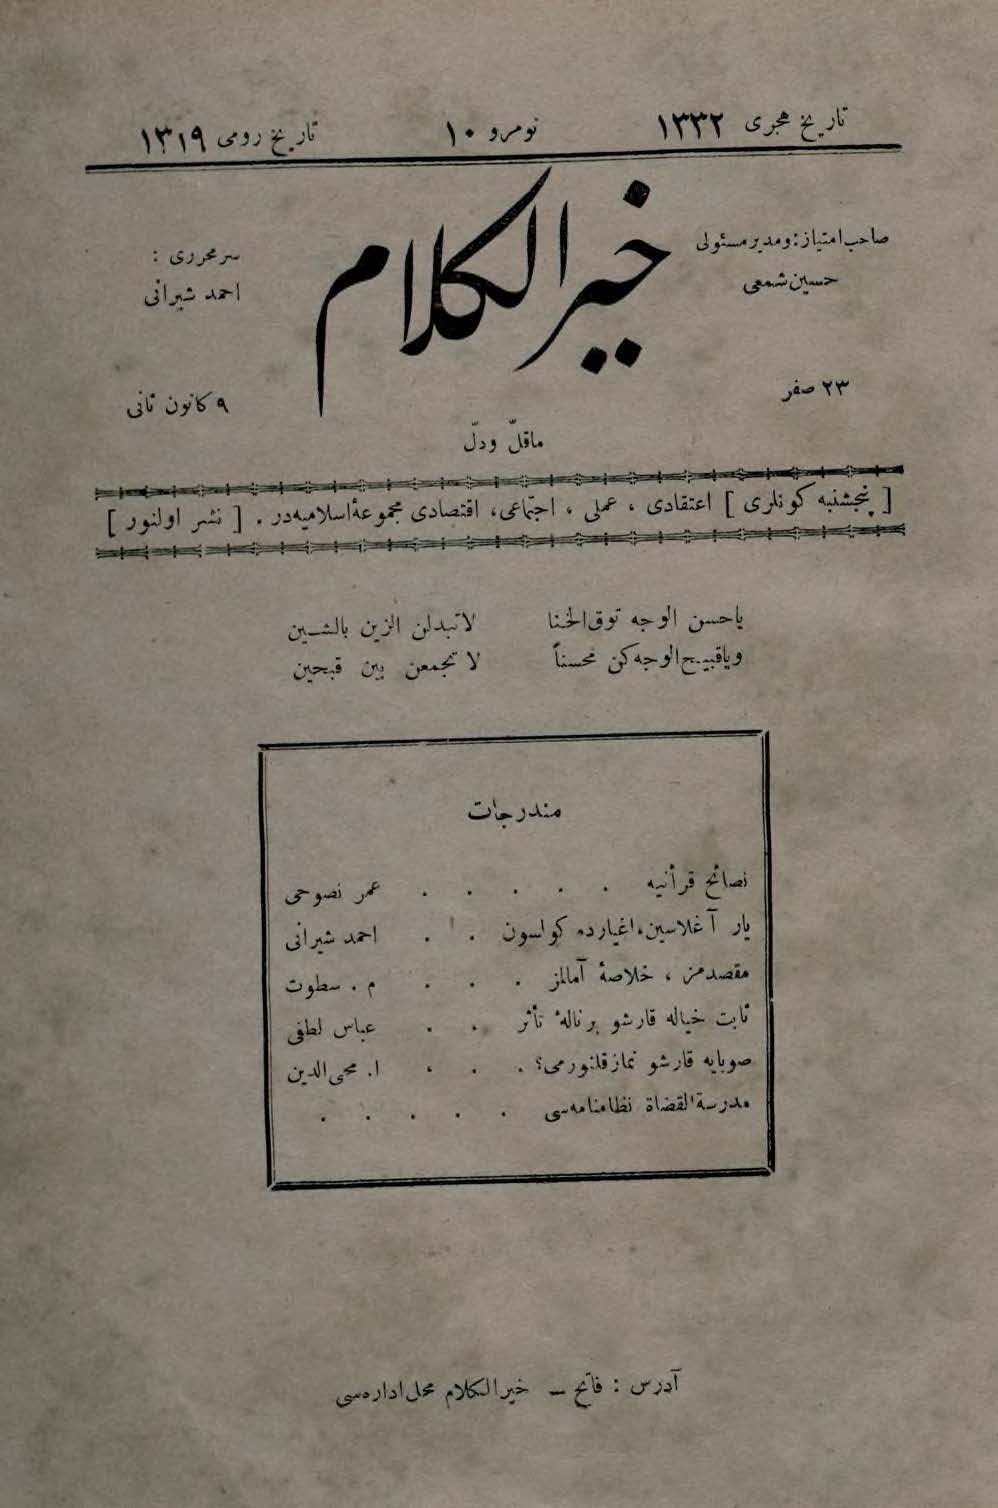 تاریخ هجری ۱۳۳۲ نومرو ۱۰ تاریخ رومی ۱۳۱۹
صاحب امتیاز : و مدیر مسئولی
حسین شمعی
خیر الکلام
سر محرری :
احمد شیرانی
۲۳ صفر
۹ کانون ثانی
ماقلّ ودلّ
[ پنجشنبه کونلری ] اعتقادی ، عملی ، اجتماعی ، اقتصادی مجموعۀ اسلامیه در . [ نشر اولنور ]
یاحسن الوجه توق الخنا لاتبدلن الزین بالشین
ویاقبیح الوجه کن محسناً لا تجمعن بین قبحین
مندرجات
نصائح قرأنیه . . . . . عمر نصوحی
یار آغلاسین، اغیارده کولسون . . احمد شیرانی
مقصدمز ، خلاصۀ آمالمز . . . م . سطوت
ثابت خیاله قارشو بر نالۀ تأثر . . عباس لطفی
صوبایه قارشو نماز قلنورمی؟ . . . ا. محی الدین
مدرسة القضاة نظامنامه سی . . . . .
آدرس : فاتح — خیر الکلام محل اداره سی